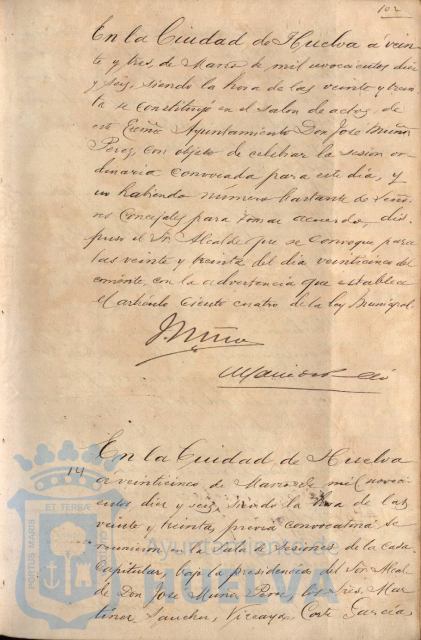 102
En la Ciudad de Huelva á vein-
te y tres de Marzo de mil novecientos diez
y seis, siendo la hora de las veinte y trein-
ta se constituyó en el salon de actos de
este Excmo Ayuntamiento Don José Muñoz
Perez, con objeto de celebrar la sesion or-
dinaria convocada para este dia, y
no habiendo número bastante de Seño-
res Concejales para tomar acuerdo, dis-
puso el Sr. Alcalde que se convoque para
las veinte y treinta del dia veinticinco del
corriente, con la advertencia que establece
el artículo ciento cuatro de la ley Municipal.
J. Muñoz
14
En la Ciudad de Huelva
á veinticinco de Marzo de mil nove-
cientos diez y seis, siendo la hora de las
veinte y treinta, previa convocatoria se
reunieron en la Sala de Sesiones de la casa
Capitular, bajo la presidencia del Sr. Alcal-
de Don José Muñoz Perez, los Sres. Mar-
tinez Sanchez, Vizcaya, Corte Garcia,
PORTUS MARIS ET TERRAE
Ayuntamiento de
HUELVA